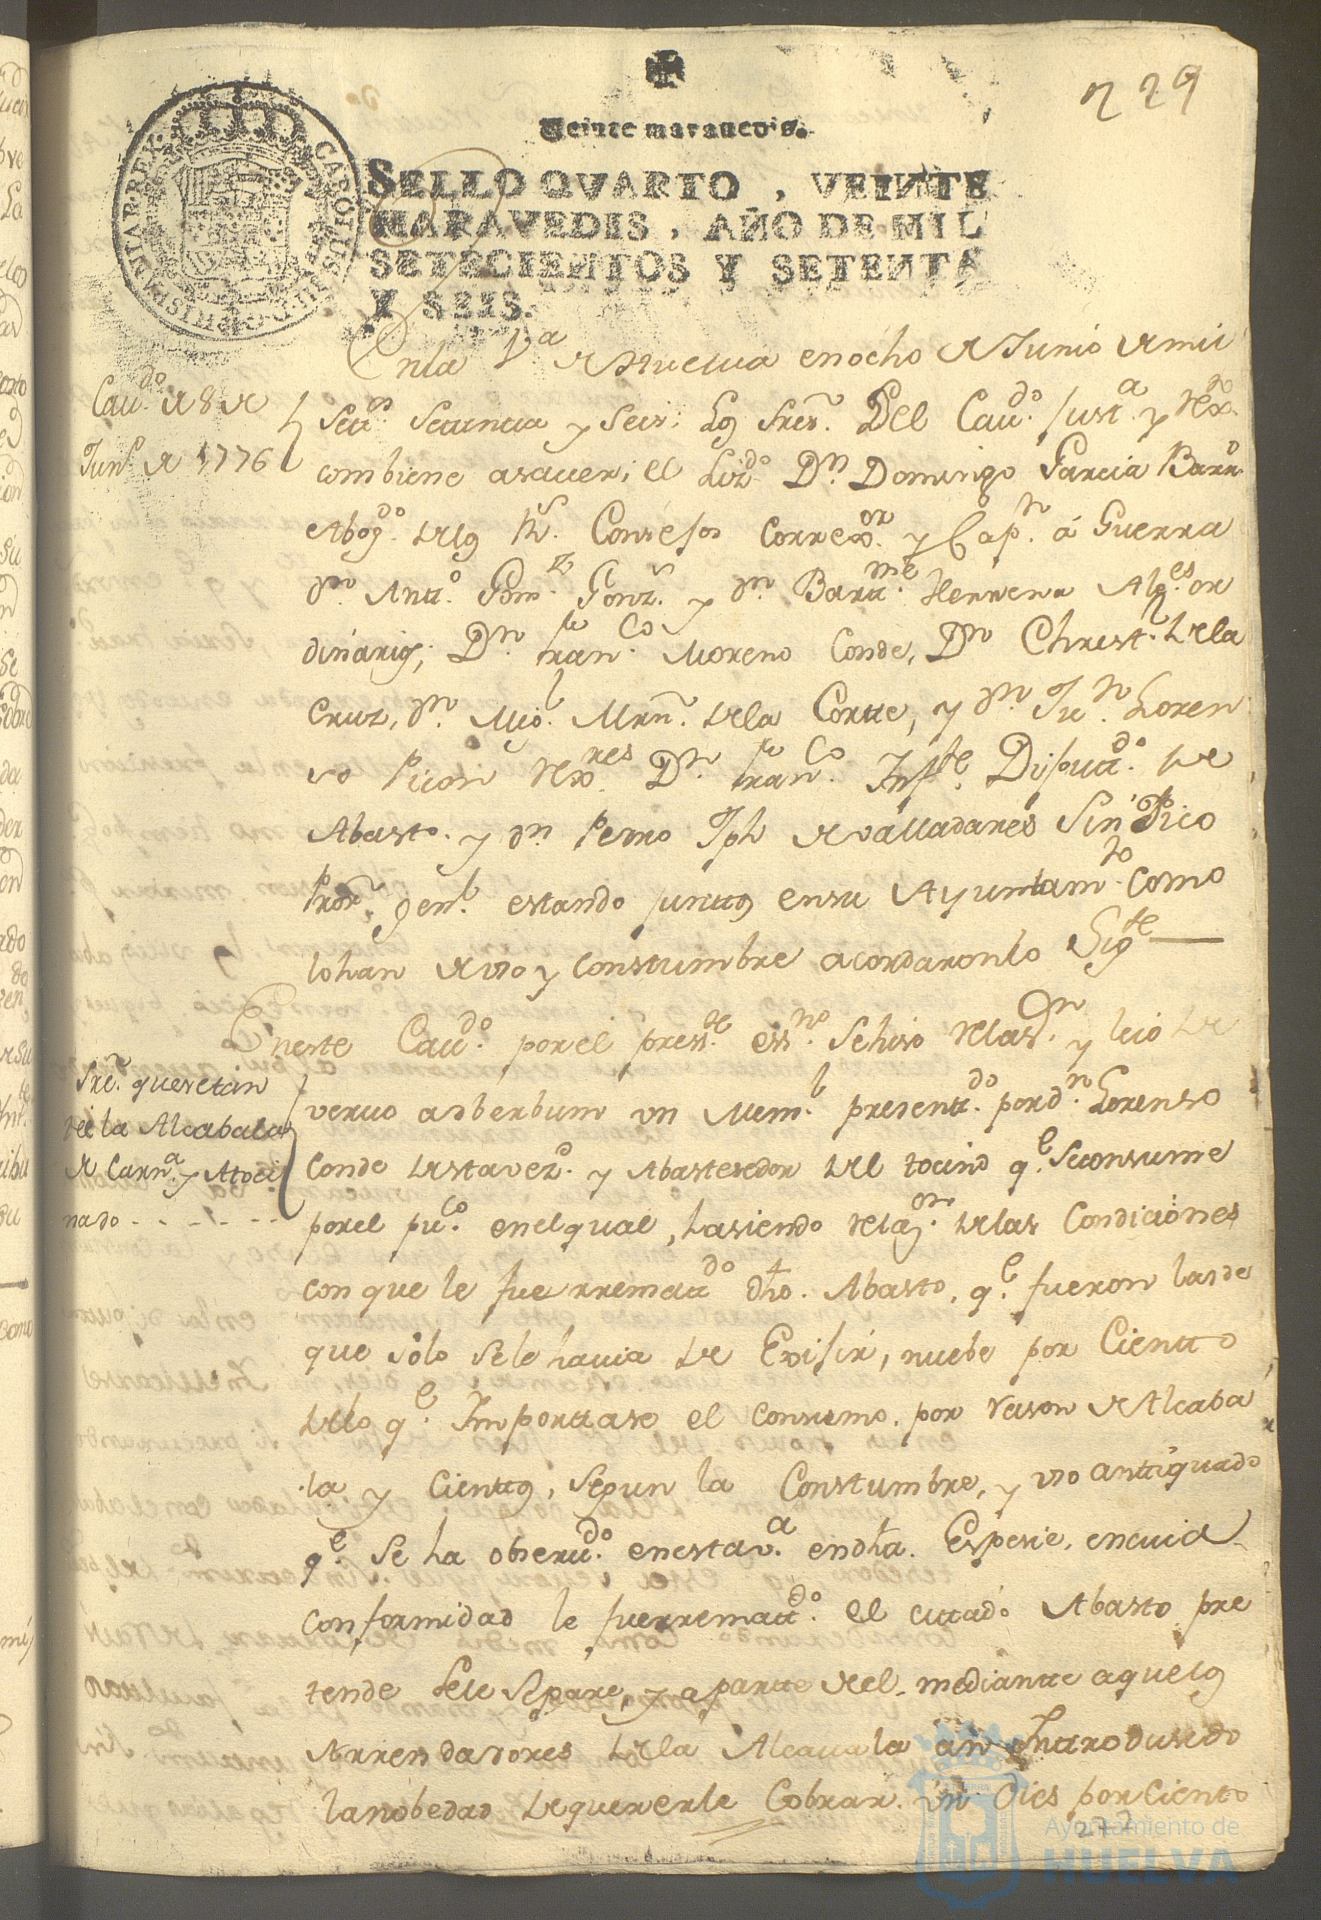 229
Veinte maravedis.
SELLO QVARTO, VEINTE
MARAVEDIS, AÑO DE MIL
SETECIENTOS Y SETENTA
Y SEIS.
CAROLUS III D.G. HISPANIAR. REX
Cau.do de 8 de
Jun.o de 1776
En la V.a de Huelua en ocho de Junio de mil
Sett.os Settenta y Seis: Los Sres. Del Cau.do Just.a y Rex.to
combiene asauer; el Liz.do D.n Domingo Garcia Barr.o
Abog.do de los R.s Consejos Correx.or y Cap.n á Guerra
D.n Antt.o Gom.z Gonz. y D.n Bartt.me Herrera Alg.es or
dinarios; D.n Fran.co Moreno Conde, D.n Christ.l de la
Cruz, D.n Mig.l Mrn. de la Cortte, y D.n Ju.n Loren
so Picon Rex.res D.n Fran.co Inf.te Diputt.do de
Abasto. y D.n Pedro Jph de Valladares Sindico
Pror. Gen.l estando junttos en su Ayuntam.to como
lo han de uso y constumbre acordaron lo Sig.te
En este Cau.do por el press.te ess.no se hiso Relas.on y leió de
Sre. queretin
de la Alcabala
de Carn.a y Atoci
nado
veruo adberbum un Mem.l presentt.do por d.n Lorenso
Conde de esta vez.o y Abastesedor del tocino q.e se consume
por el pu.co en el qual, hasiendo relaz.on de las Condiciónes
con que le fue rrematt.do dho. Abasto, q.e fueron las de
que solo se le hauia de Exisir, nuebe por Cientto
de lo q.e Importtase el consumo, por rason de Alcaba
la y Cienttos, Segun la Constumbre, y uso antiguado
q.e se ha oberu.do en esta V.a en dha. Espesie, en cuia
conformidad le fue rrematt.do el cittado Abasto pre
tende se le Separe, y apartte de el, mediantte a que los
Arrendadores de la Alcauala an Inttrodusido
la nobedad de quererle Cobrar un Dies por Ciento
Ayuntamiento de
HUELVA